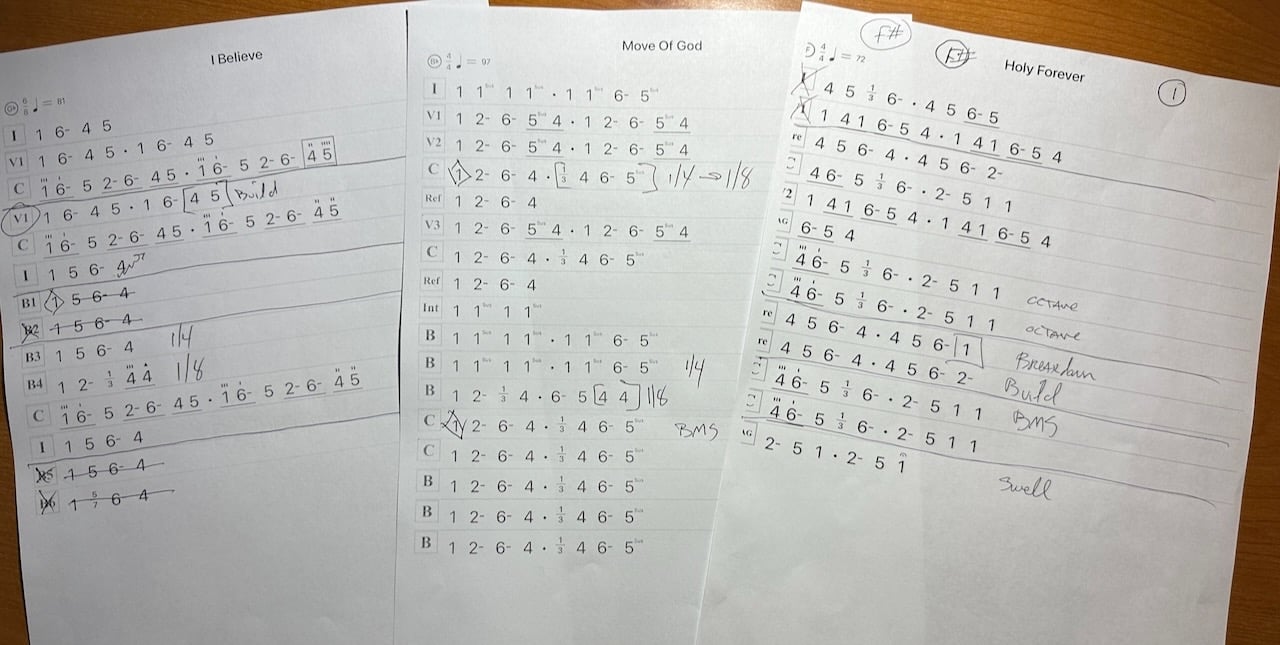 I Believe
6/8 ♩ = 81
I 1 6- 4 5
V1 1 6- 4 5 · 1 6- 4 5
C 1 6- 5 2- 6- 4 5 · 1 6- 5 2- 6- 4 5
V1 1 6- 4 5 · 1 6- [4 5] Build
C 1 6- 5 2- 6- 4 5 · 1 6- 5 2- 6- 4 5
I 1 5 6-
B1 1 5 6- 4
B2 1 5 6- 4
B3 1 5 6- 4 1/4
B4 1 2- 1/3 4 4 1/8
C 1 6- 5 2- 6- 4 5 · 1 6- 5 2- 6- 4 5
I 1 5 6- 4
B5 1 5 6- 4
B6 1 5/7 6- 4
Move Of God
4/4 ♩ = 97
I 1 1sus 1 1sus · 1 1sus 6- 5sus
V1 1 2- 6- 5sus 4 · 1 2- 6- 5sus 4
V2 1 2- 6- 5sus 4 · 1 2- 6- 5sus 4
C 1 2- 6- 4 · [1/3 4 6- 5sus] 1/4 → 1/8
Ref 1 2- 6- 4
V3 1 2- 6- 5sus 4 · 1 2- 6- 5sus 4
C 1 2- 6- 4 · 1/3 4 6- 5sus
Ref 1 2- 6- 4
Int 1 1sus 1 1sus
B 1 1sus 1 1sus · 1 1sus 6- 5sus
B 1 1sus 1 1sus · 1 1sus 6- 5sus 1/4
B 1 2- 1/3 4 · 6- 5 [4 4] 1/8
C 1 2- 6- 4 · 1/3 4 6- 5sus BMS
C 1 2- 6- 4 · 1/3 4 6- 5sus
B 1 2- 6- 4 · 1/3 4 6- 5sus
B 1 2- 6- 4 · 1/3 4 6- 5sus
B 1 2- 6- 4 · 1/3 4 6- 5sus
F#
F#
Holy Forever
1
4/4 ♩ = 72
I 4 5 1/3 6- · 4 5 6- 5
1 4 1 6- 5 4 · 1 4 1 6- 5 4
re 4 5 6- 4 · 4 5 6- 2-
4 6- 5 1/3 6- · 2- 5 1 1
2 1 4 1 6- 5 4 · 1 4 1 6- 5 4
AG 6- 5 4
4 6- 5 1/3 6- · 2- 5 1 1 OCTAVE
4 6- 5 1/3 6- · 2- 5 1 1 OCTAVE
re 4 5 6- 4 · 4 5 6- 1 BREAKdown
re 4 5 6- 4 · 4 5 6- 2- Build
4 6- 5 1/3 6- · 2- 5 1 1 BMS
4 6- 5 1/3 6- · 2- 5 1 1
AG 2- 5 1 · 2- 5 1
Swell